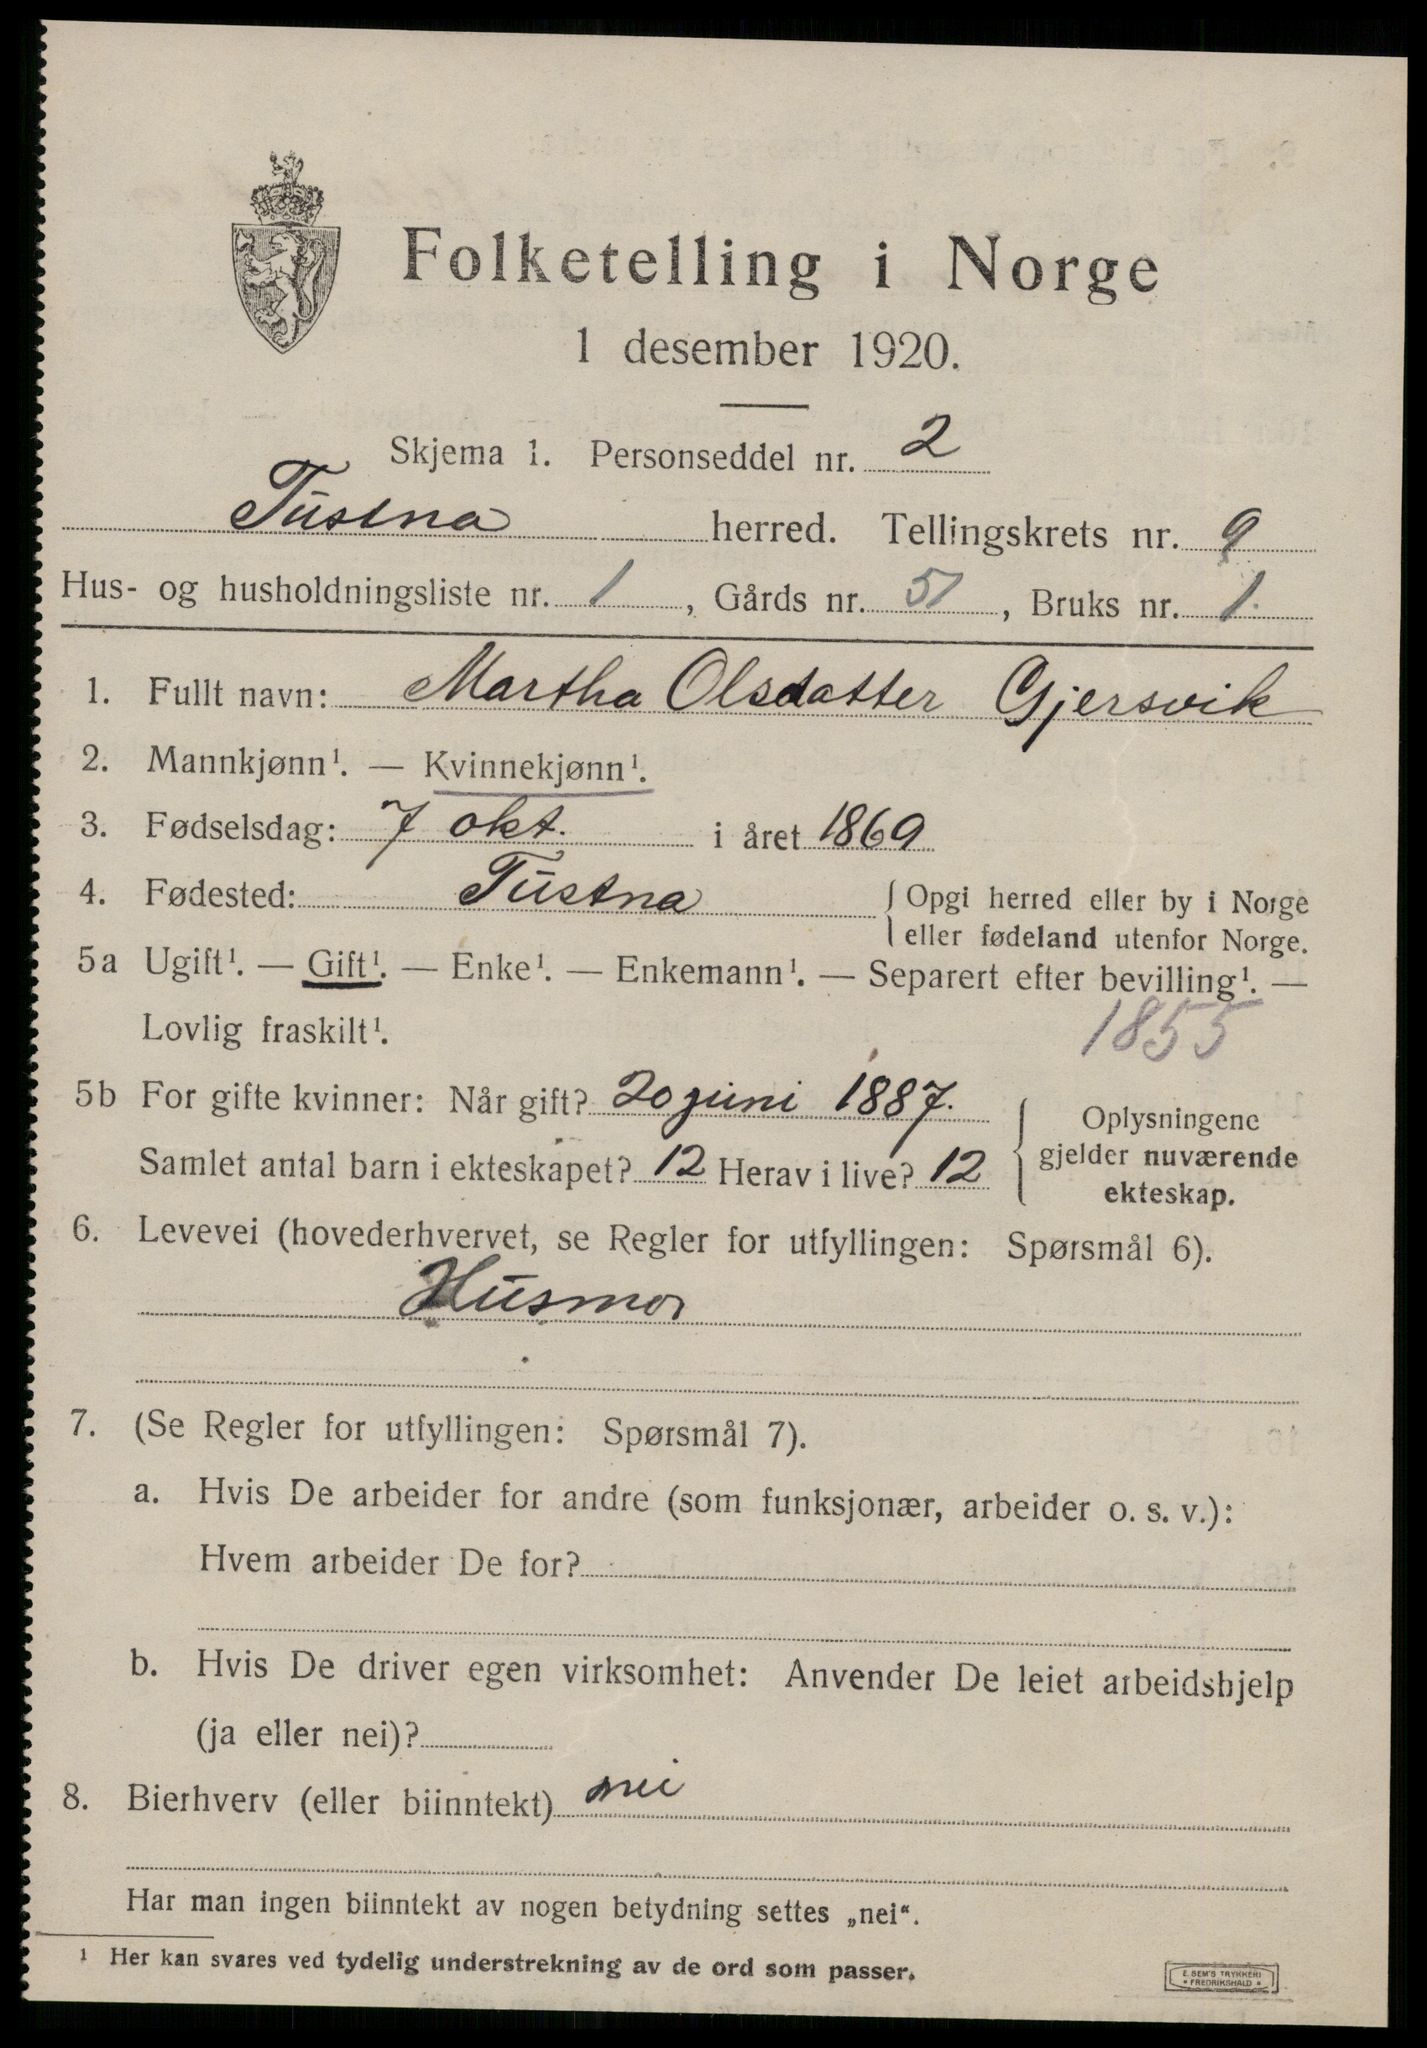 Folketelling i Norge
1 desember 1920.
Skjema 1. Personseddel nr. 2
Tustna herred. Tellingskrets nr. 9
Hus- og husholdningsliste nr. 1, Gårds nr. 51, Bruks nr. 1.
1. Fullt navn: Martha Olsdatter Gjersvik
2. Mannkjønn¹. — Kvinnekjønn¹.
3. Fødselsdag: 7 okt. i året 1869
4. Fødested: Tustna { Opgi herred eller by i Norge
eller fødeland utenfor Norge.
5a Ugift¹. — Gift¹. — Enke¹. — Enkemann¹. — Separert efter bevilling¹. —
Lovlig fraskilt¹. 1855
5b For gifte kvinner: Når gift? 20 juni 1887. { Oplysningene
Samlet antal barn i ekteskapet? 12 Herav i live? 12 gjelder nuværende
ekteskap.
6. Levevei (hovederhvervet, se Regler for utfyllingen: Spørsmål 6).
Husmor
7. (Se Regler for utfyllingen: Spørsmål 7).
a. Hvis De arbeider for andre (som funksjonær, arbeider o. s. v.):
Hvem arbeider De for?
b. Hvis De driver egen virksomhet: Anvender De leiet arbeidshjelp
(ja eller nei)?
8. Bierhverv (eller biinntekt) nei
Har man ingen biinntekt av nogen betydning settes „nei“.
¹ Her kan svares ved tydelig understrekning av de ord som passer.
E. SEM'S TRYKKERI
* FREDRIKSHALD *